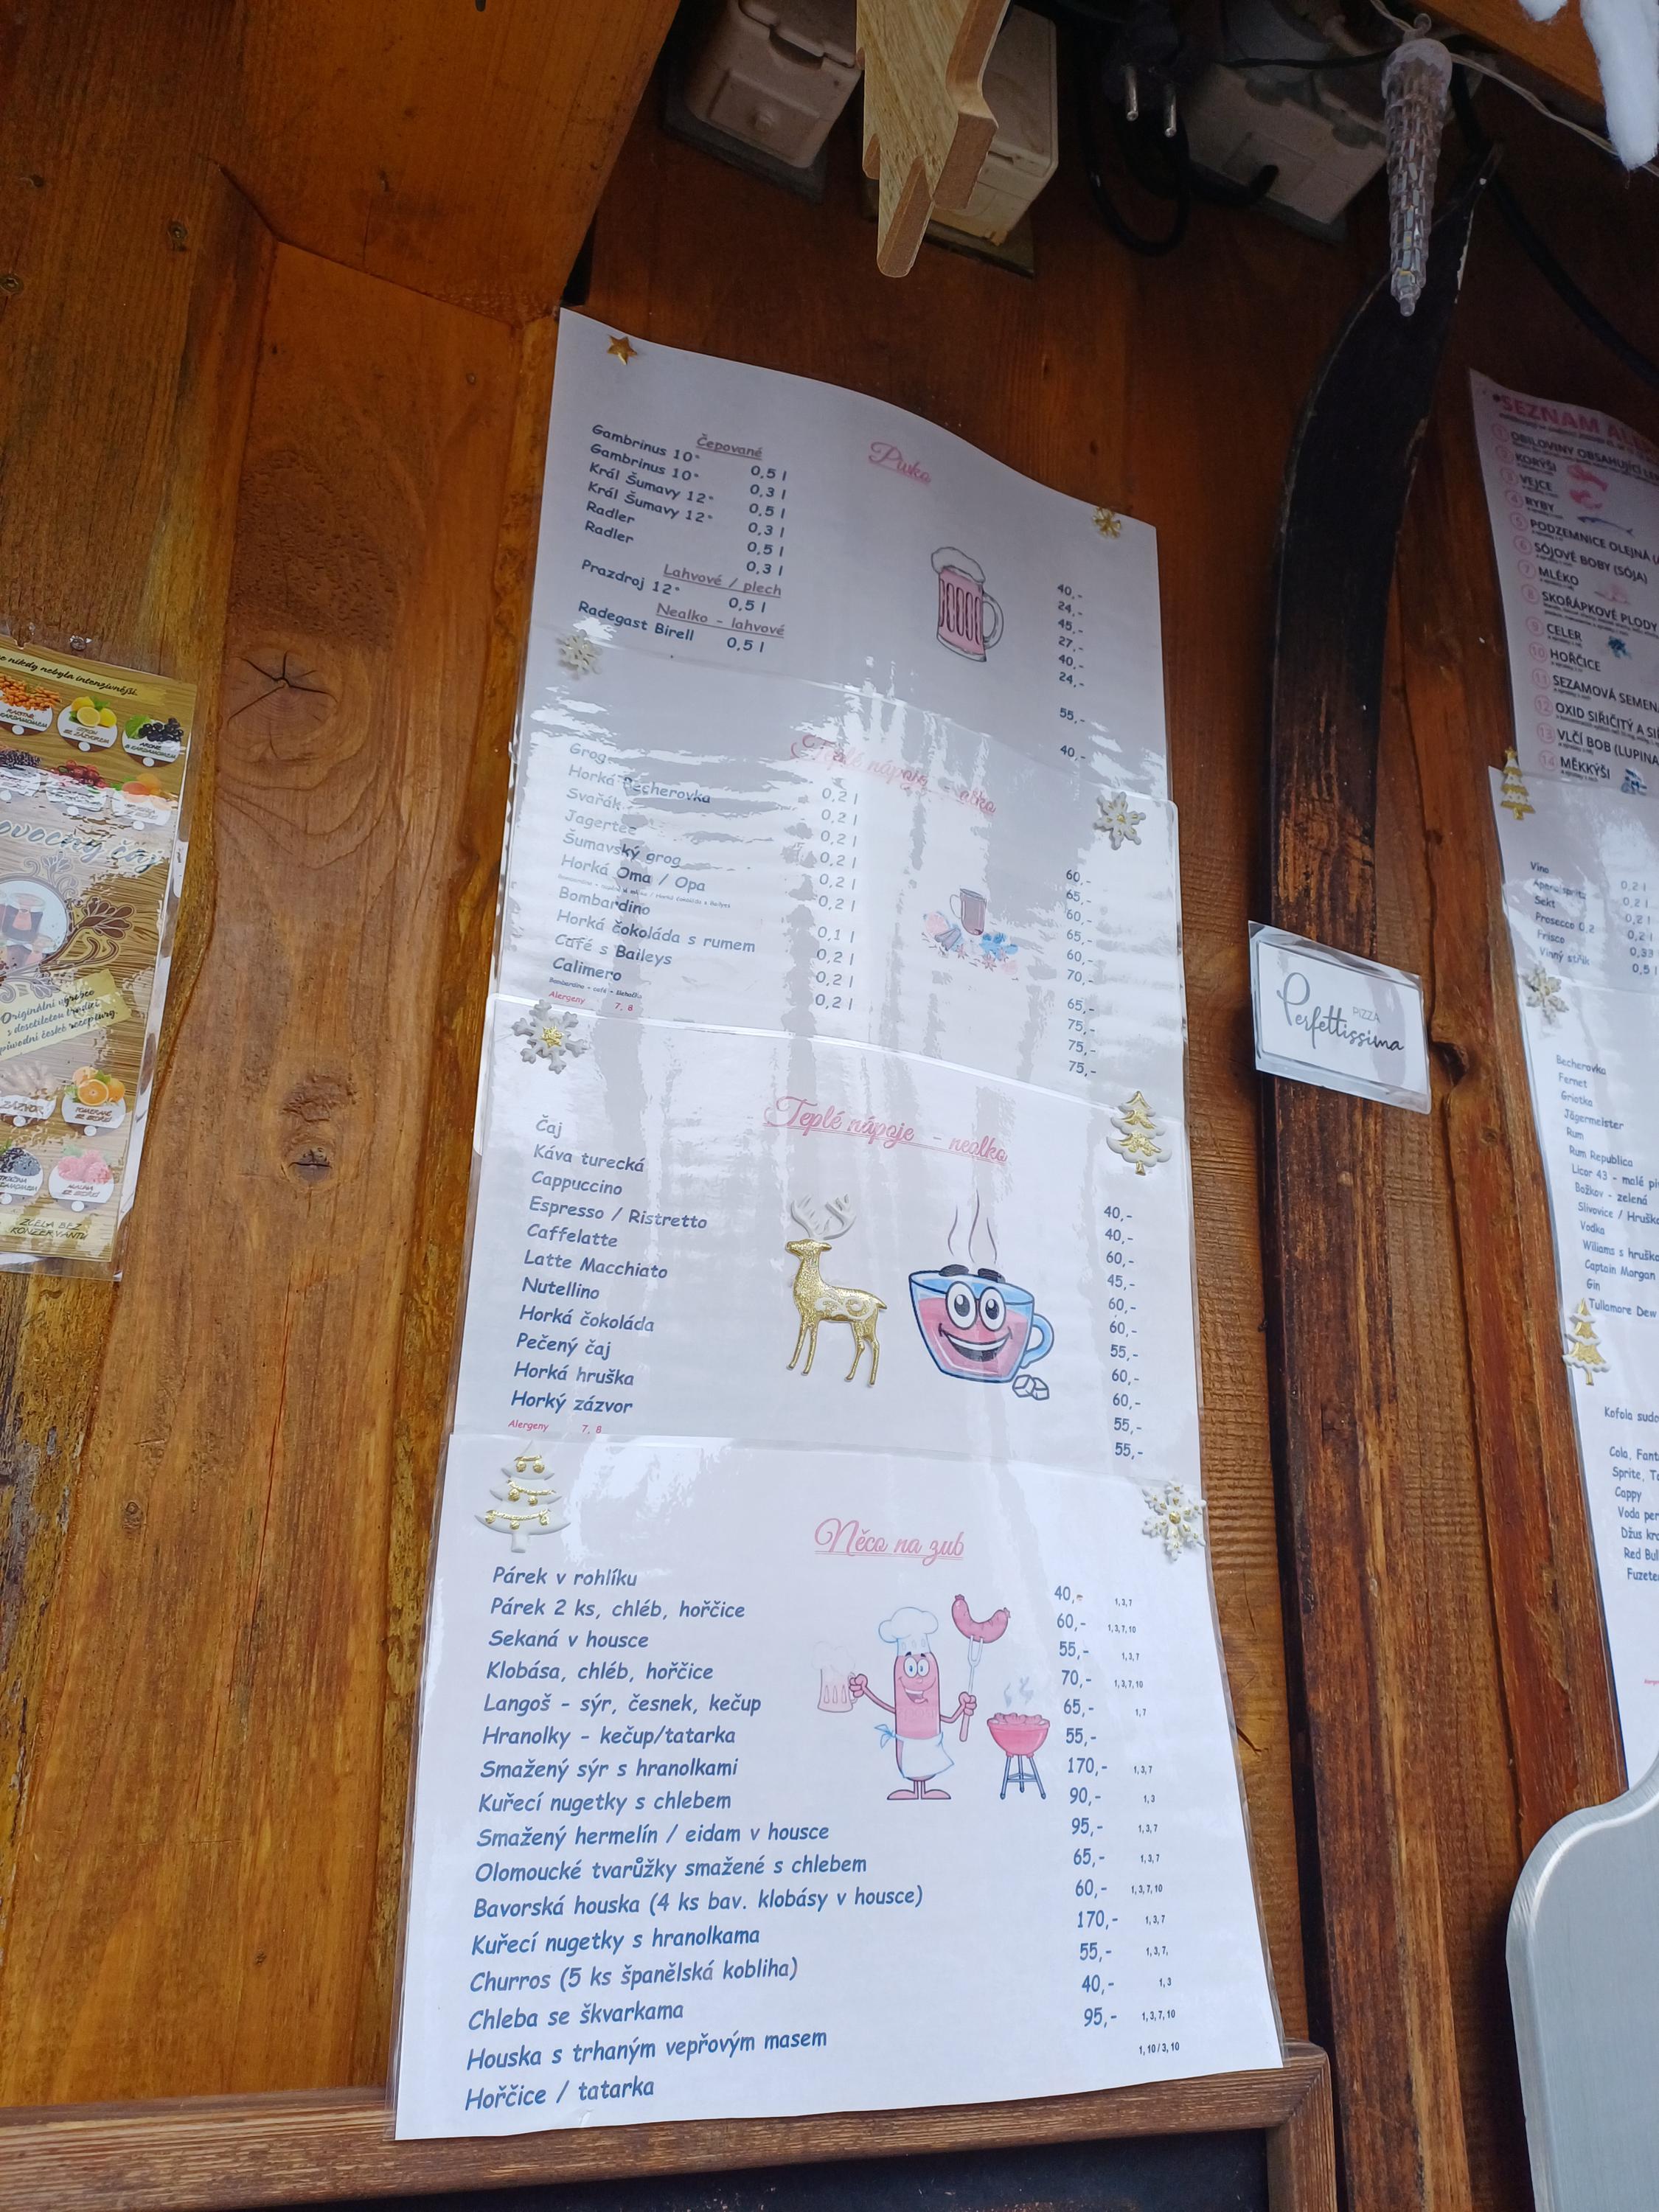 nikdy nebyla intenzivnější.
ovocný čaj
Originální výrobce
s desetiletou tradicí
původní české receptury.
ZÁZVOR
ZCELA BEZ
KONZERVANTŮ
Pivko
Čepované
Gambrinus 10° 0,5 l 40,-
Gambrinus 10° 0,3 l 24,-
Král Šumavy 12° 0,5 l 45,-
Král Šumavy 12° 0,3 l 27,-
Radler 0,5 l 40,-
Radler 0,3 l 24,-
Lahvové / plech
Prazdroj 12° 0,5 l 55,-
Nealko - lahvové
Radegast Birell 0,5 l 40,-
Teplé nápoje - alko
Grog 0,2 l 60,-
Horká Becherovka 0,2 l 65,-
Svařák 0,2 l 60,-
Jagertee 0,2 l 65,-
Šumavský grog 0,2 l 60,-
Horká Oma / Opa 0,2 l 70,-
Bombardino 0,1 l 65,-
Horká čokoláda s rumem 0,2 l 75,-
Café s Baileys 0,2 l 75,-
Calimero 0,2 l 75,-
Bombardino - café - šlehačka
Alergeny 7, 8
Teplé nápoje - nealko
Čaj 40,-
Káva turecká 40,-
Cappuccino 60,-
Espresso / Ristretto 45,-
Caffelatte 60,-
Latte Macchiato 60,-
Nutellino 55,-
Horká čokoláda 60,-
Pečený čaj 60,-
Horká hruška 55,-
Horký zázvor 55,-
Alergeny 7, 8
Něco na zub
Párek v rohlíku 40,- 1, 3, 7
Párek 2 ks, chléb, hořčice 60,- 1, 3, 7, 10
Sekaná v housce 55,- 1, 3, 7
Klobása, chléb, hořčice 70,- 1, 3, 7, 10
Langoš - sýr, česnek, kečup 65,- 1, 7
Hranolky - kečup/tatarka 55,-
Smažený sýr s hranolkami 170,- 1, 3, 7
Kuřecí nugetky s chlebem 90,- 1, 3
Smažený hermelín / eidam v housce 95,- 1, 3, 7
Olomoucké tvarůžky smažené s chlebem 65,- 1, 3, 7
Bavorská houska (4 ks bav. klobásy v housce) 60,- 1, 3, 7, 10
Kuřecí nugetky s hranolkama 170,- 1, 3, 7
Churros (5 ks španělská kobliha) 55,- 1, 3, 7,
Chleba se škvarkama 40,- 1, 3
Houska s trhaným vepřovým masem 95,- 1, 3, 7, 10
Hořčice / tatarka 1, 10 / 3, 10
PIZZA
Perfettissima
*SEZNAM
1 OBILOVINY OBSAHUJÍCÍ
2 KORÝŠI
3 VEJCE
4 RYBY
5 PODZEMNICE OLEJNÁ
6 SÓJOVÉ BOBY (SÓJA)
7 MLÉKO
8 SKOŘÁPKOVÉ PLODY
9 CELER
10 HOŘČICE
11 SEZAMOVÁ
12 OXID SIŘIČITÝ A
13 VLČÍ BOB
14 MĚKKÝŠI
Víno 0,2 l
Aperol spritz 0,2 l
Sekt 0,2 l
Prosecco 0,2 0,2 l
Frisco 0,33
Vinný střik 0,5 l
Becherovka
Fernet
Griotka
Jägermeister
Rum
Rum Republica
Licor 43 - malé
Božkov - zelená
Slivovice /
Vodka
Wiliams s
Captain Morgan
Gin
Tullamore Dew
Kofola
Cola,
Sprite,
Cappy
Voda
Džus
Red